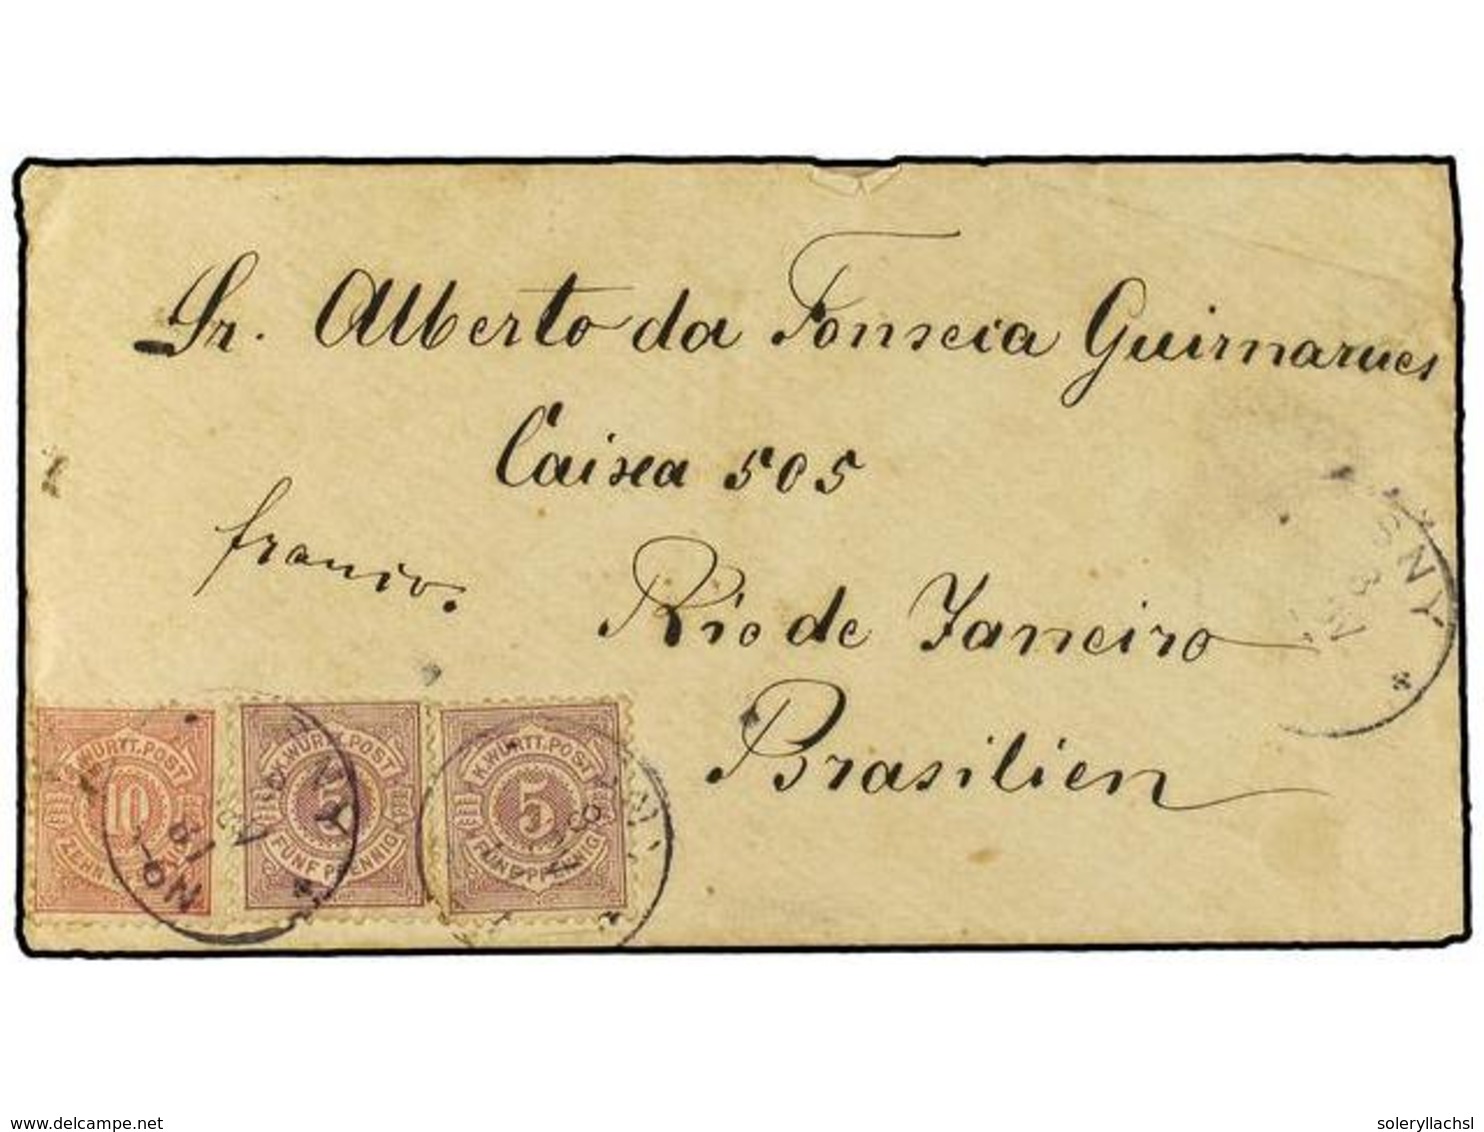 Sr. Alberto da Fonseca Guimaraes
Caixa 505
franco.
Rio de Janeiro
Brasilien
NY
K.WÜRTT.POST
10
ZEHN
K.WÜRTT.POST
FÜNF PFENNIG
NY
K.WÜRTT.POST
5
FÜNF PFENNIG
delcampe.net
soleryllachsl